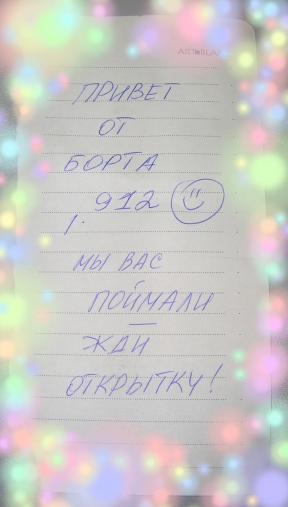 ARTOBLAJ
ПРИВЕТ
ОТ
БОРТА
912
МЫ ВАС
ПОЙМАЛИ
ЖДИ
ОТКРЫТКУ!